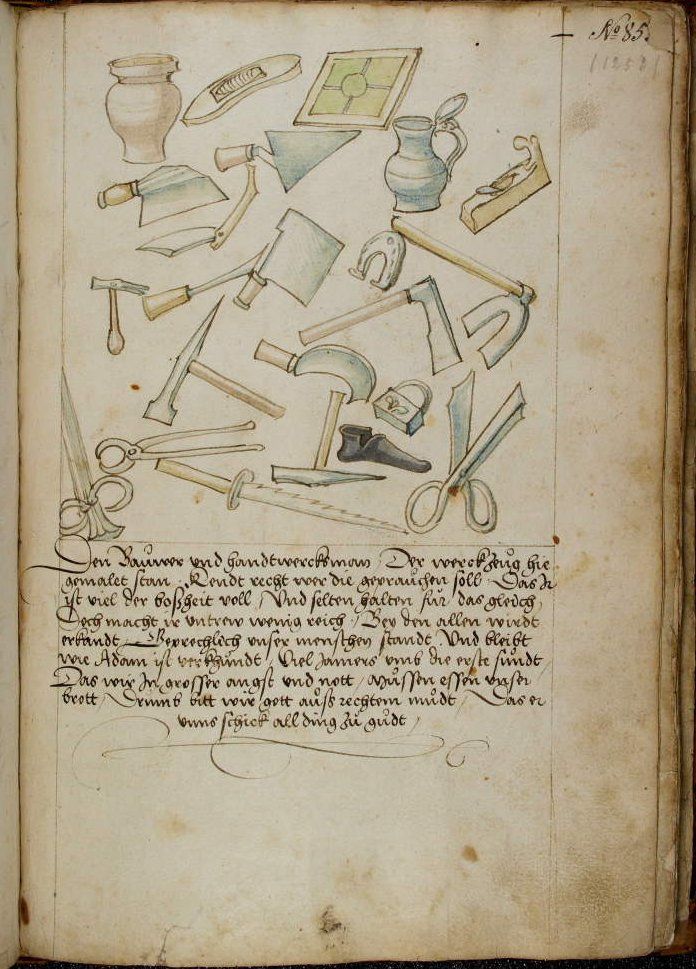 No 85.
Den Bauwer vnd handtwercksman / Der werckzeug hie
gemalet stan / Kendt recht wer die geprauchen soll / Das Ir
ist viel der boßheit voll / Vnd selten halten für das gleich /
Doch macht ir vntrew wenig reich / Bey den allen wirdt
erkandt / Geprechlich vnser menschen standt / Vnd bleibt
wie Adam ist verkhundt / Viel Jamers vmb die erste sundt /
Das wir In grosser angst vnd nott / Müssen essen vnser
brott / Drumb bitt wir gott auß rechtem mudt / Das er
vnns schick all ding zu gudt /